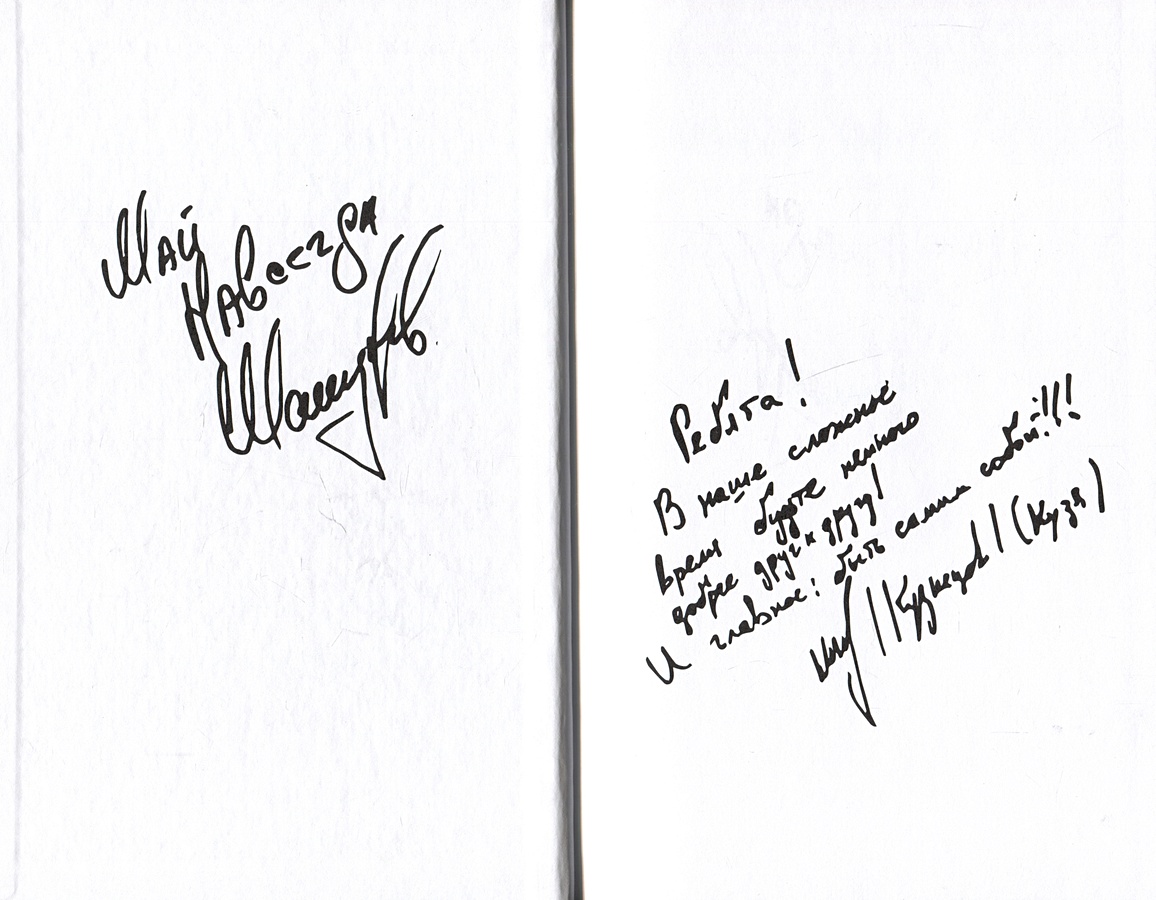 Май
Навсегда
Ребята!
В наше сложное
время будте немного
добрее друг к другу!
И главное: быть самим собой!!!
/Кузнецов/ (Кузя)